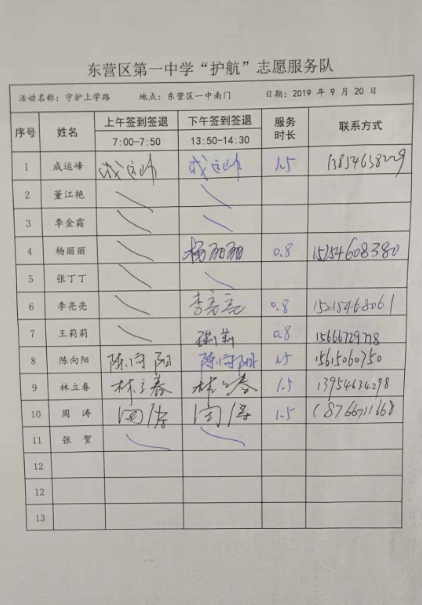 东营区第一中学“护航”志愿服务队
活动名称：守护上学路 地点：东营区一中南门 日期：2019 年 9 月 20 日
序号 姓名 上午签到签退 7:00-7:50 下午签到签退 13:50-14:30 服务时长 联系方式
1 成运峰 成运峰 成运峰 1.5
2 董江艳
3 李金霜
4 杨丽丽 杨丽丽 0.8 15254608380
5 张丁丁
6 李亮亮 李亮亮 0.8
7 王莉莉 0.8 15666729718
8 陈向阳 陈向阳 陈向阳 1.5 15615060750
9 林立春 林立春 林立春 1.5 13954634298
10 周涛 周涛 周涛 1.5 18766711668
11 张贺
12
12
13